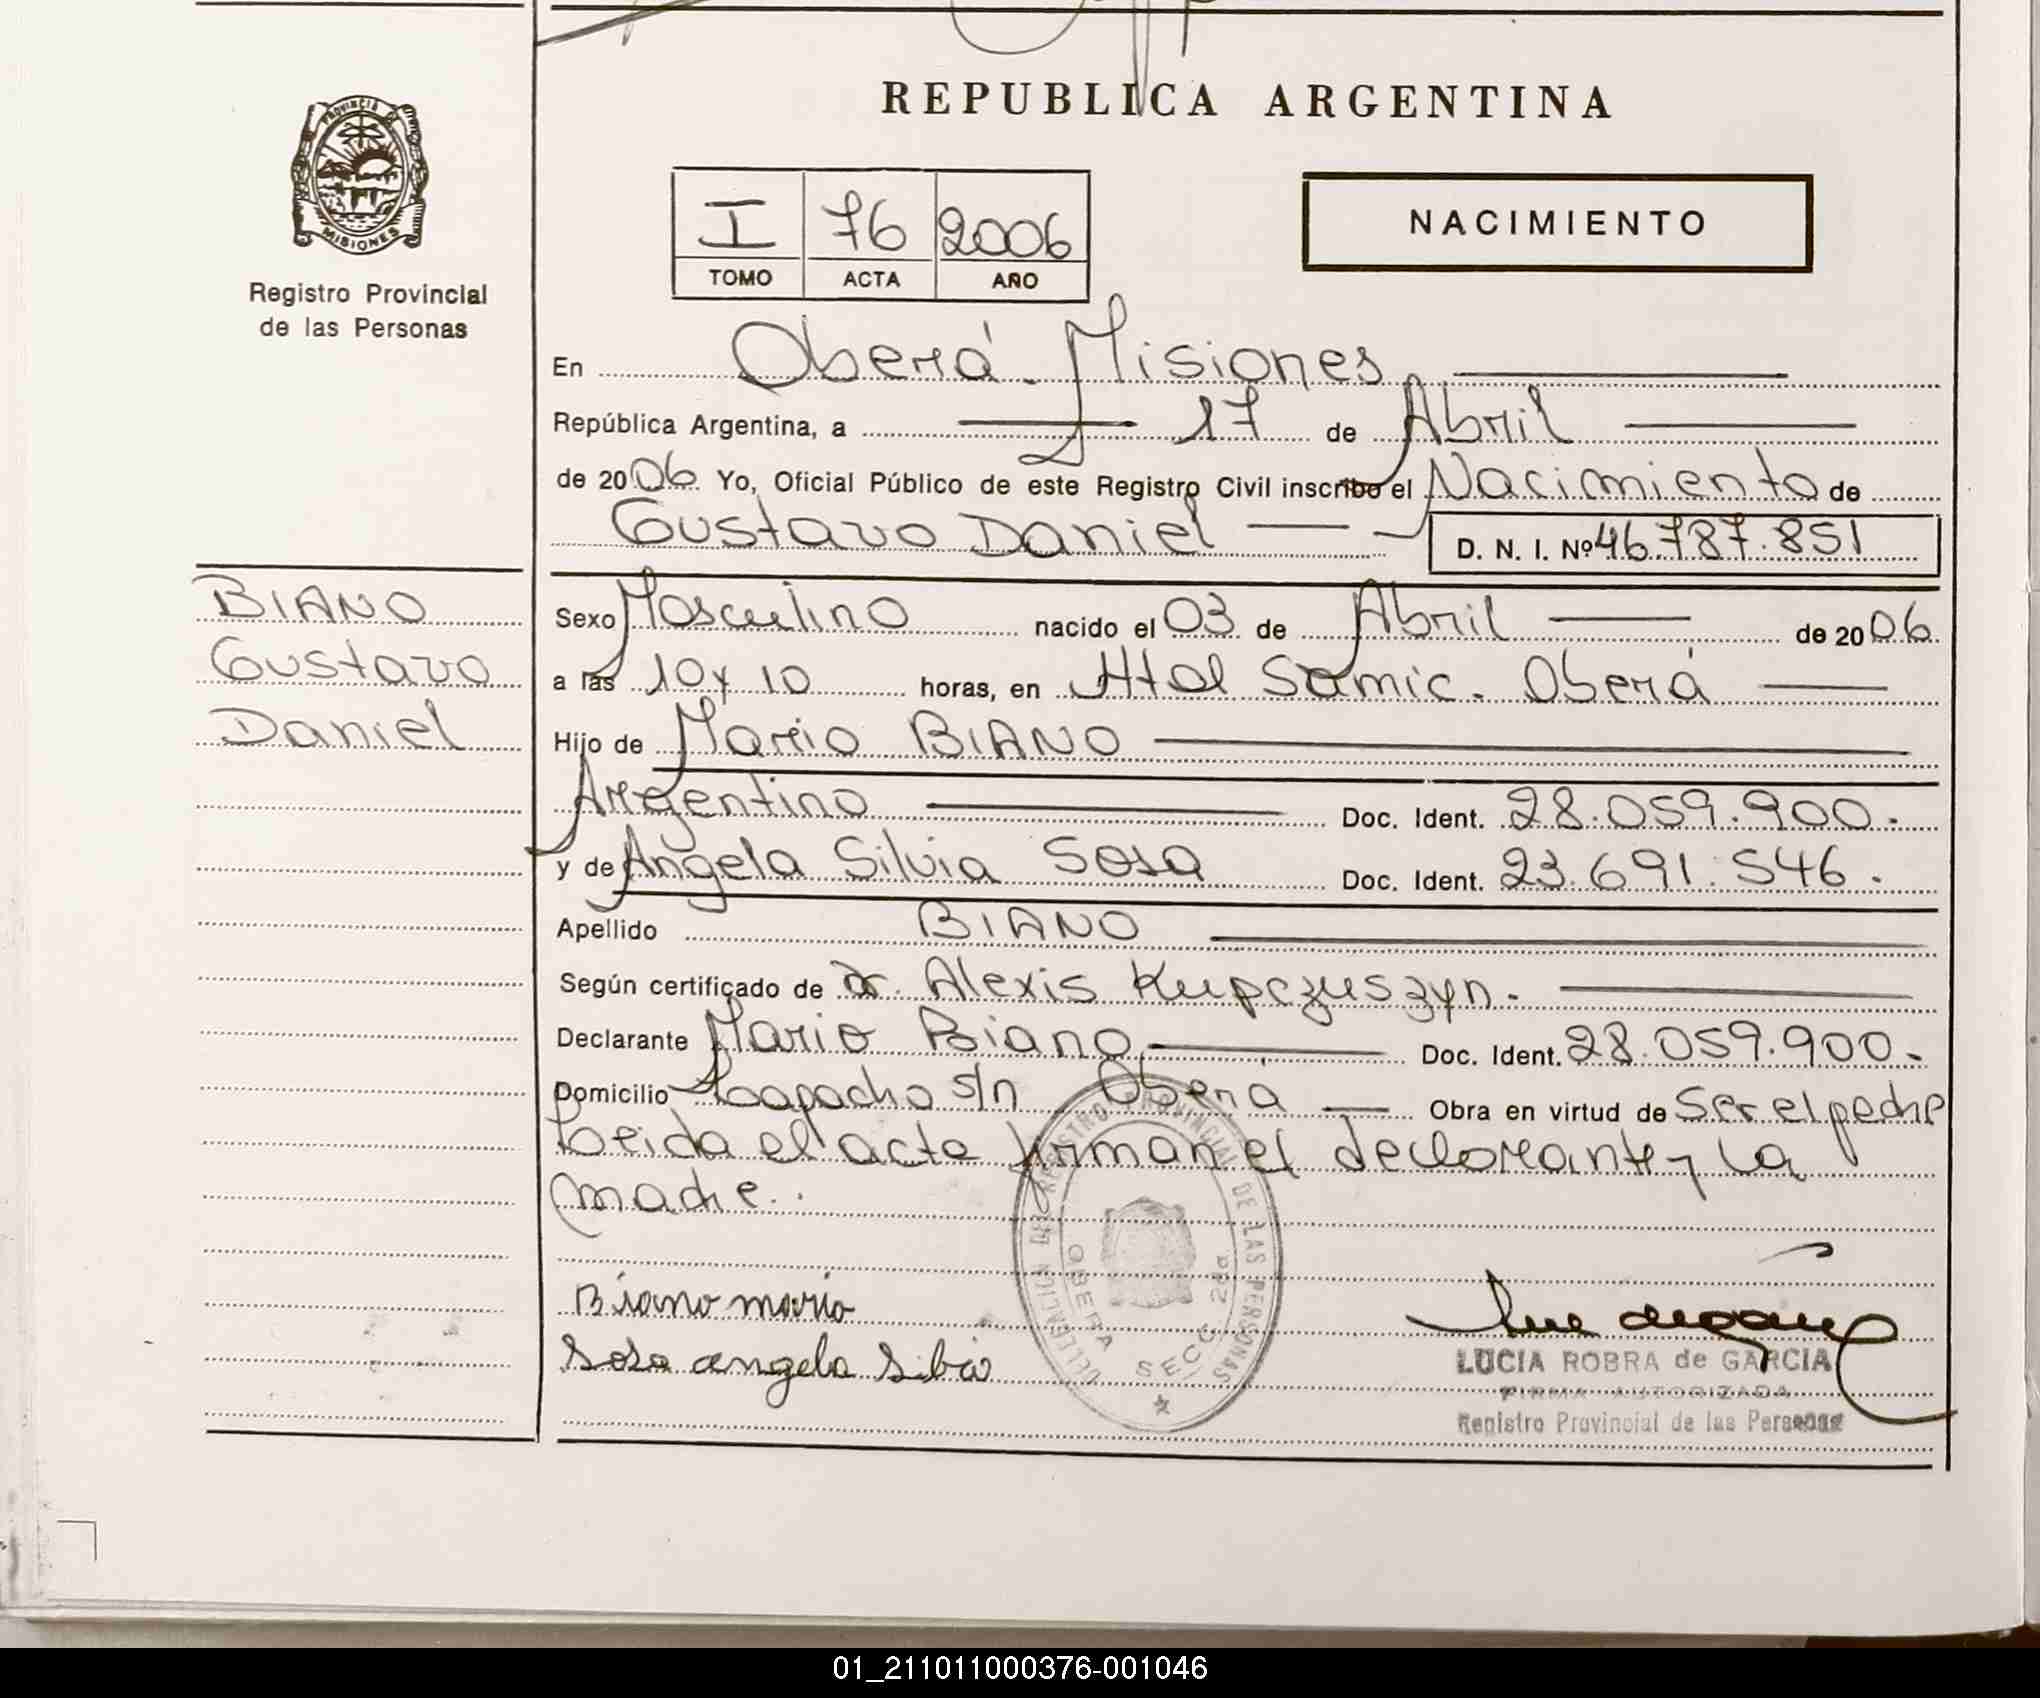 REPUBLICA ARGENTINA
PROVINCIA
MISIONES
Registro Provincial
de las Personas
I 76 2006
TOMO ACTA AÑO
NACIMIENTO
En Oberá - Misiones
República Argentina, a 17 de Abril
de 2006 Yo, Oficial Público de este Registro Civil inscribo el Nacimiento de
Gustavo Daniel D. N. I. Nº 46.787.851
BIANO
Gustavo
Daniel
Sexo Masculino nacido el 03 de Abril de 2006
a las 10 y 10 horas, en Htal Samic. Oberá
Hijo de Mario BIANO
Argentino Doc. Ident. 28.059.900.
y de Angela Silvia Sosa Doc. Ident. 23.691.546.
Apellido BIANO
Según certificado de dr. Alexis Kupczuszyn.
Declarante Mario Biano Doc. Ident. 28.059.900.
Domicilio Lapacho s/n Oberá Obra en virtud de Ser el padre
Leida el acta firman el declarante y la
madre.
Biano mario
Sosa angela Silvia
DELEGACION DEL REGISTRO PROVINCIAL DE LAS PERSONAS
OBERA SECC. 2da
LUCIA ROBRA de GARCIA
FIRMA AUTORIZADA
Registro Provincial de las Personas
01_211011000376-001046